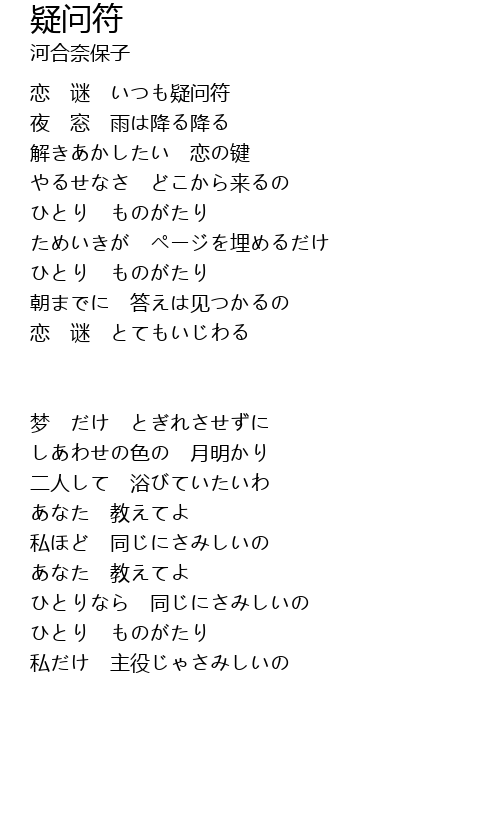 疑问符
河合奈保子
恋　谜　いつも疑问符
夜　窓　雨は降る降る
解きあかしたい　恋の键
やるせなさ　どこから来るの
ひとり　ものがたり
ためいきが　ページを埋めるだけ
ひとり　ものがたり
朝までに　答えは见つかるの
恋　谜　とてもいじわる
梦　だけ　とぎれさせずに
しあわせの色の　月明かり
二人して　浴びていたいわ
あなた　教えてよ
私ほど　同じにさみしいの
あなた　教えてよ
ひとりなら　同じにさみしいの
ひとり　ものがたり
私だけ　主役じゃさみしいの